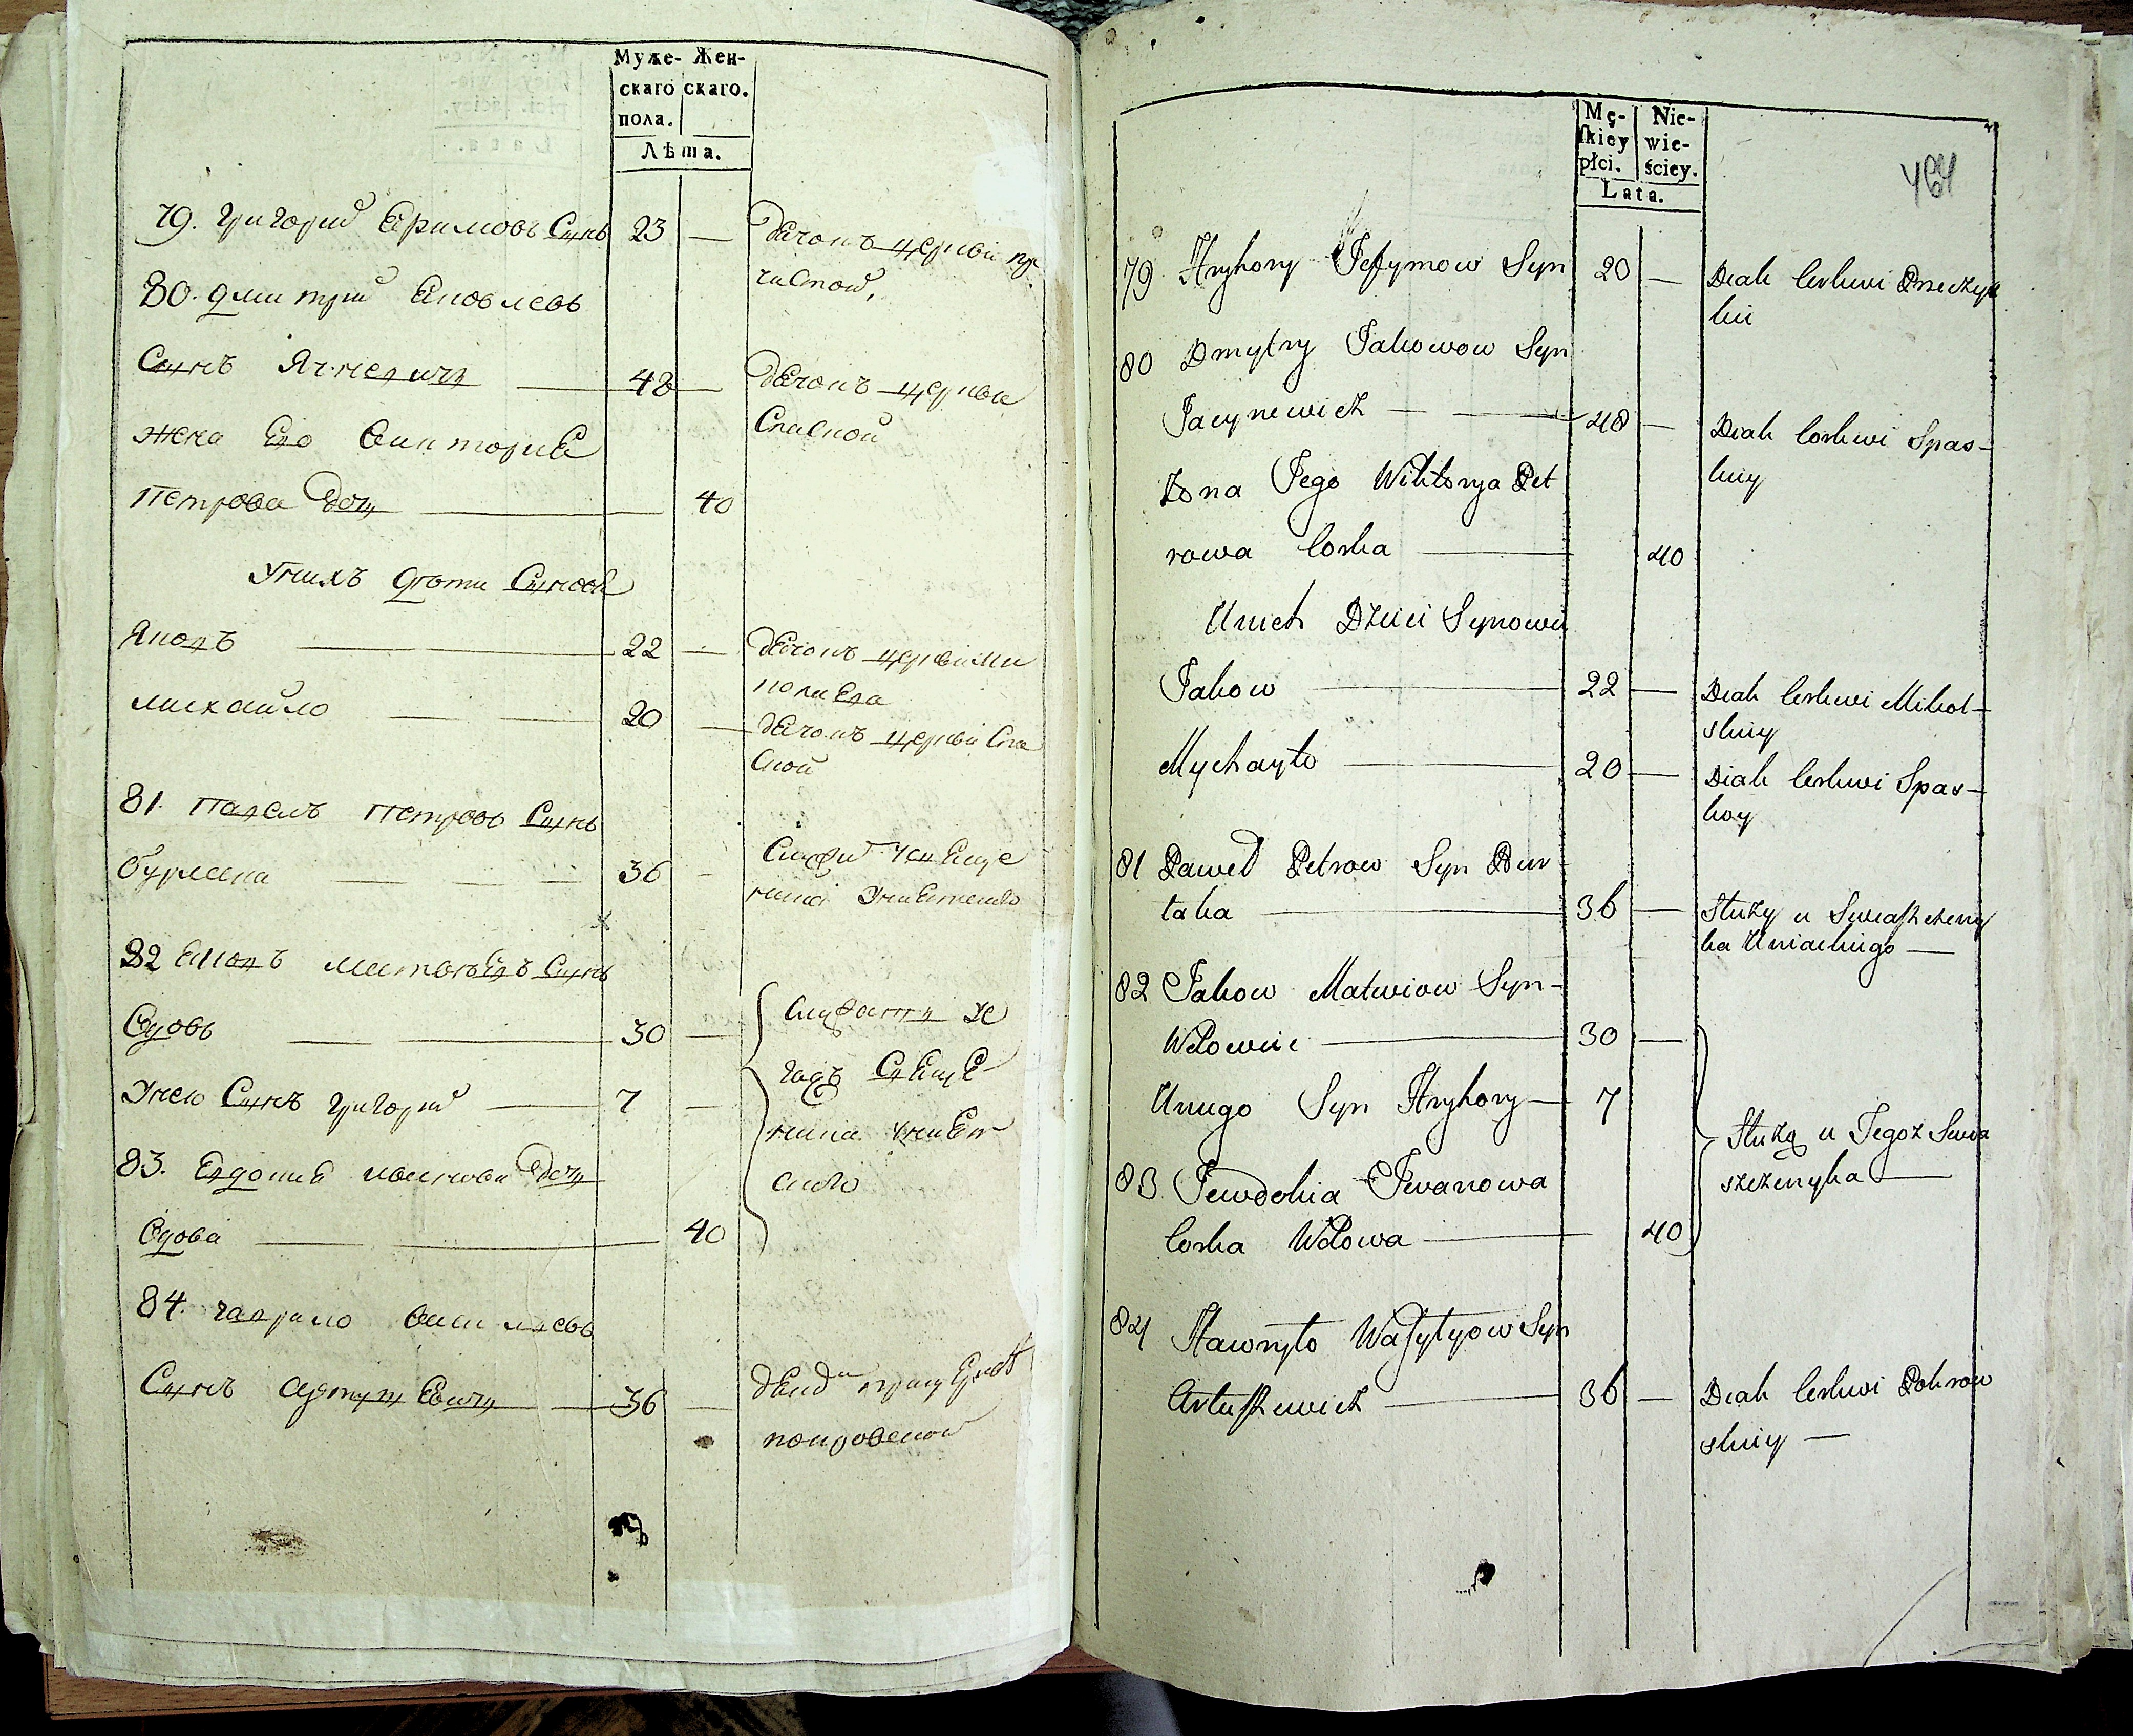 Муже- Жен-
скаго скаго.
пола.
Лѣта.
79. Григорий Ефимовъ Сынъ 23 — дьчокъ церкви пре
чистой,
80. Дмитрий Яковлевъ
Сынъ Яцневичъ — 48 — дьчокъ церкви
Спаской
жена Его Виктория
Петрова дочь — 40
Унихъ дѣти Сыновя
Яковъ — 22 — дьчокъ церкви Ни
колаева
михайло — 20 — дьчокъ церкви Спа
ской
81. Павелъ Петровъ Сынъ
Бурлака — 36 — Служи
Униятскаго
82 Яковъ Матвѣевъ Сынъ
Вдовъ — 30 —
Унего Сынъ григорий — 7 —
83. Евдокия иванова дочь
Вдова — 40
84. гаврило Васильевъ
Сынъ Артушевичъ — 36 — церкви
покровской
Mę- Nie-
ſkiey wie-
płci. ściey.
Lata.
464
79 Hryhory Jefymow Syn 20 — Diak Cerkwi Preczys
kii
80 Dmytry Jakowow Syn
Jacynewicz — 48 — Diak Cerkwi Spas-
kiiy
Żona Jego Wiktorya Pet
rowa Corka — 40
Unich Dzieci Synowie
Jakow — 22 — Diak Cerkwi Mikol-
skiiy
Mychayło — 20 — Diak Cerkwi Spas-
koy
81 Paweł Petrow Syn Bur-
łaka — 36 — Służy u Swiaſzczeny
ka Uniackiego —
82 Jakow Matwiow Syn -
Wdowiec — 30 —
Uniego Syn Hryhory — 7
Służą u Tegoż Swia
szczenyka —
83. Jewdokia Iwanowa
Corka Wdowa — 40
84 Hawryło Wasylyow Syn
Artuſzewicz — 36 — Diak Cerkwi Pokrow
skiiy —